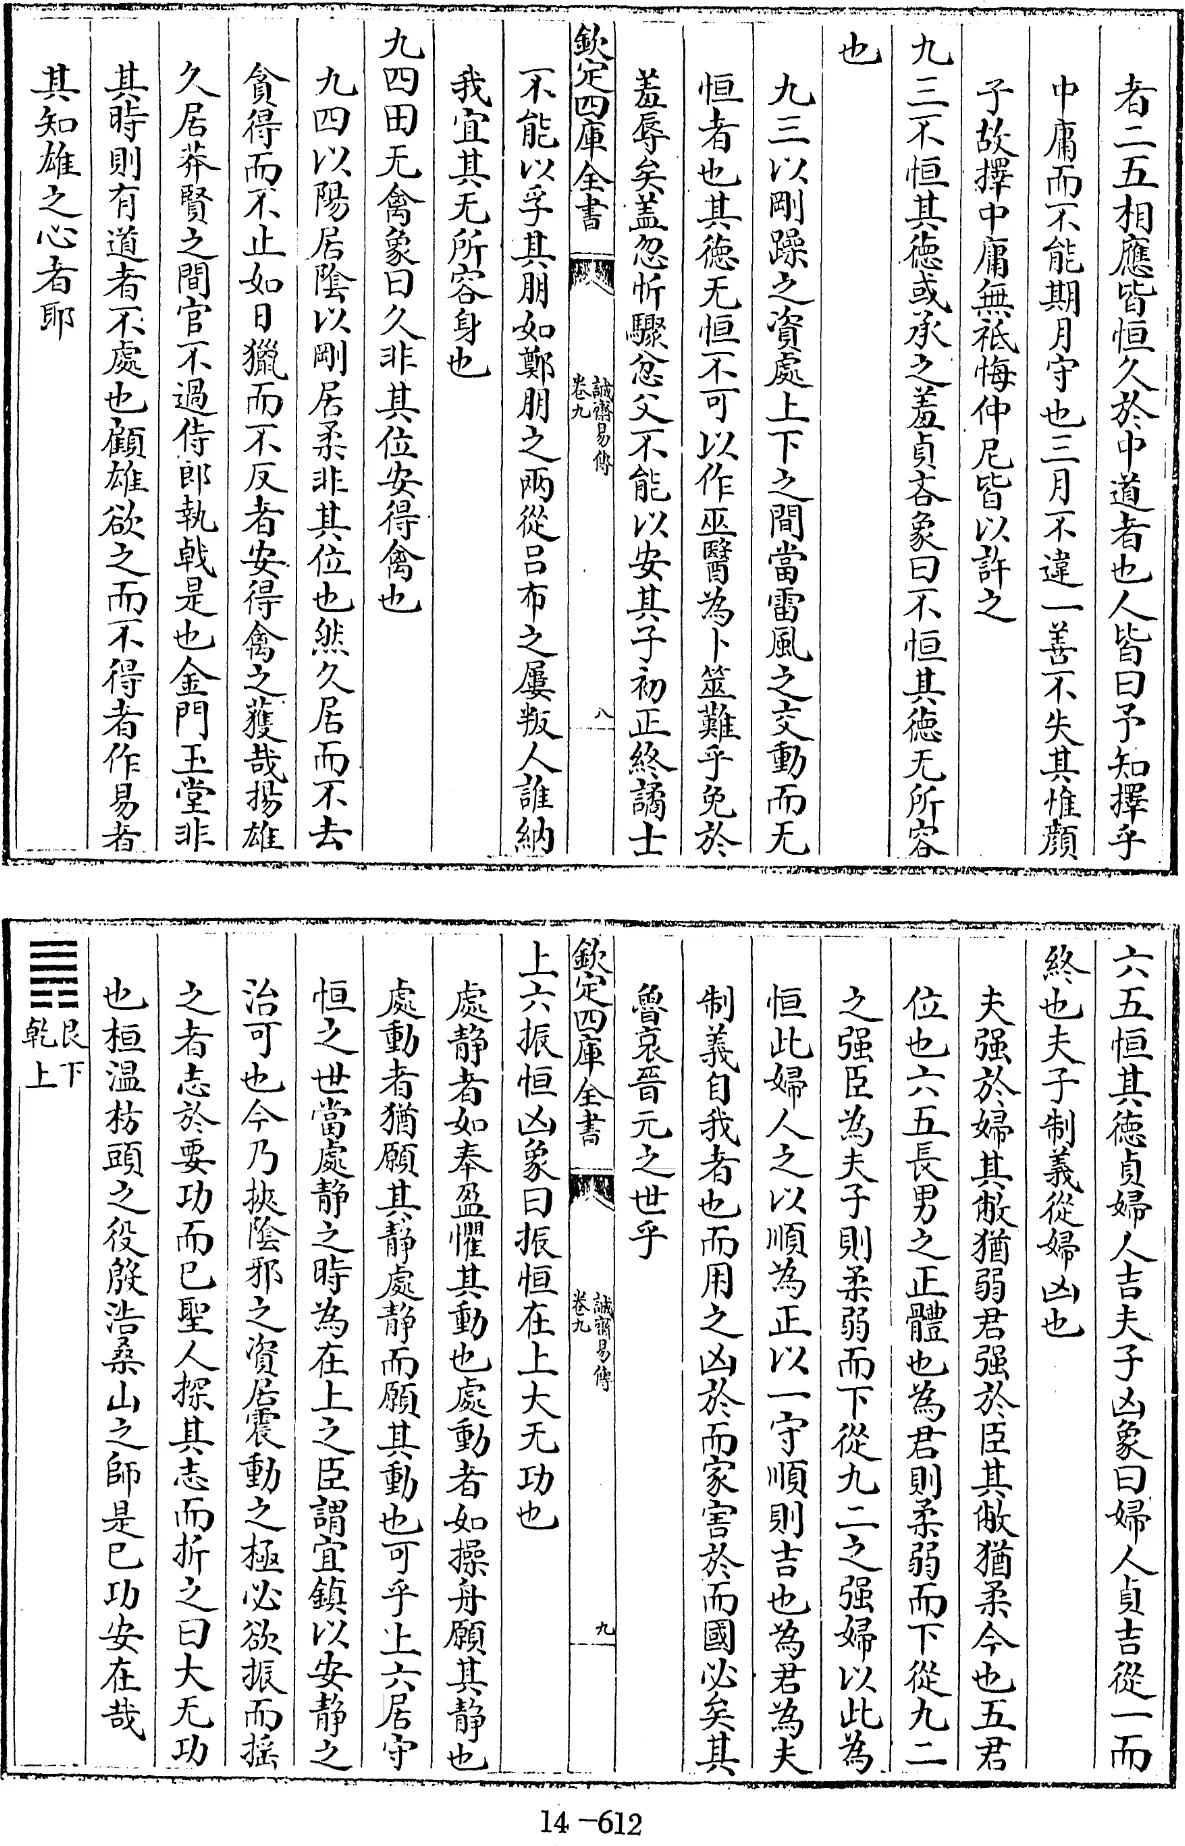 者二五相應皆恒久於中道者也人皆曰予知擇乎
中庸而不能期月守也三月不違一善不失其惟顔
子故擇中庸無祇悔仲尼皆以許之
九三不恒其徳或承之羞貞吝象曰不恒其徳无所容
也
九三以剛躁之資處上下之間當雷風之交動而无
恒者也其徳无恒不可以作巫醫為卜筮難乎免於
羞辱矣盖忽忻驟忿父不能以安其子初正終譎士
欽定四庫全書
誠齋易傳
卷九
八
不能以孚其朋如鄭朋之兩從吕布之屢叛人誰納
我宜其无所容身也
九四田无禽象曰久非其位安得禽也
九四以陽居陰以剛居柔非其位也然久居而不去
貪得而不止如日獵而不反者安得禽之獲哉揚雄
久居莽賢之間官不過侍郎執戟是也金門玉堂非
其時則有道者不處也顧雄欲之而不得者作易者
其知雄之心者耶
六五恒其徳貞婦人吉夫子凶象曰婦人貞吉從一而
終也夫子制義從婦凶也
夫强於婦其敝猶弱君强於臣其敝猶柔今也五君
位也六五長男之正體也為君則柔弱而下從九二
之强臣為夫子則柔弱而下從九二之强婦以此為
恒此婦人之以順為正以一守順則吉也為君為夫
制義自我者也而用之凶於而家害於而國必矣其
魯哀晉元之世乎
欽定四庫全書
誠齋易傳
卷九
九
上六振恒凶象曰振恒在上大无功也
處静者如奉盈懼其動也處動者如操舟願其静也
處動者猶願其静處静而願其動也可乎上六居守
恒之世當處静之時為在上之臣謂宜鎮以安静之
治可也今乃挾陰邪之資居震動之極必欲振而揺
之者志於要功而已聖人探其志而折之曰大无功
也桓温枋頭之役殷浩桑山之師是已功安在哉
䷠艮下
乾上
14-612